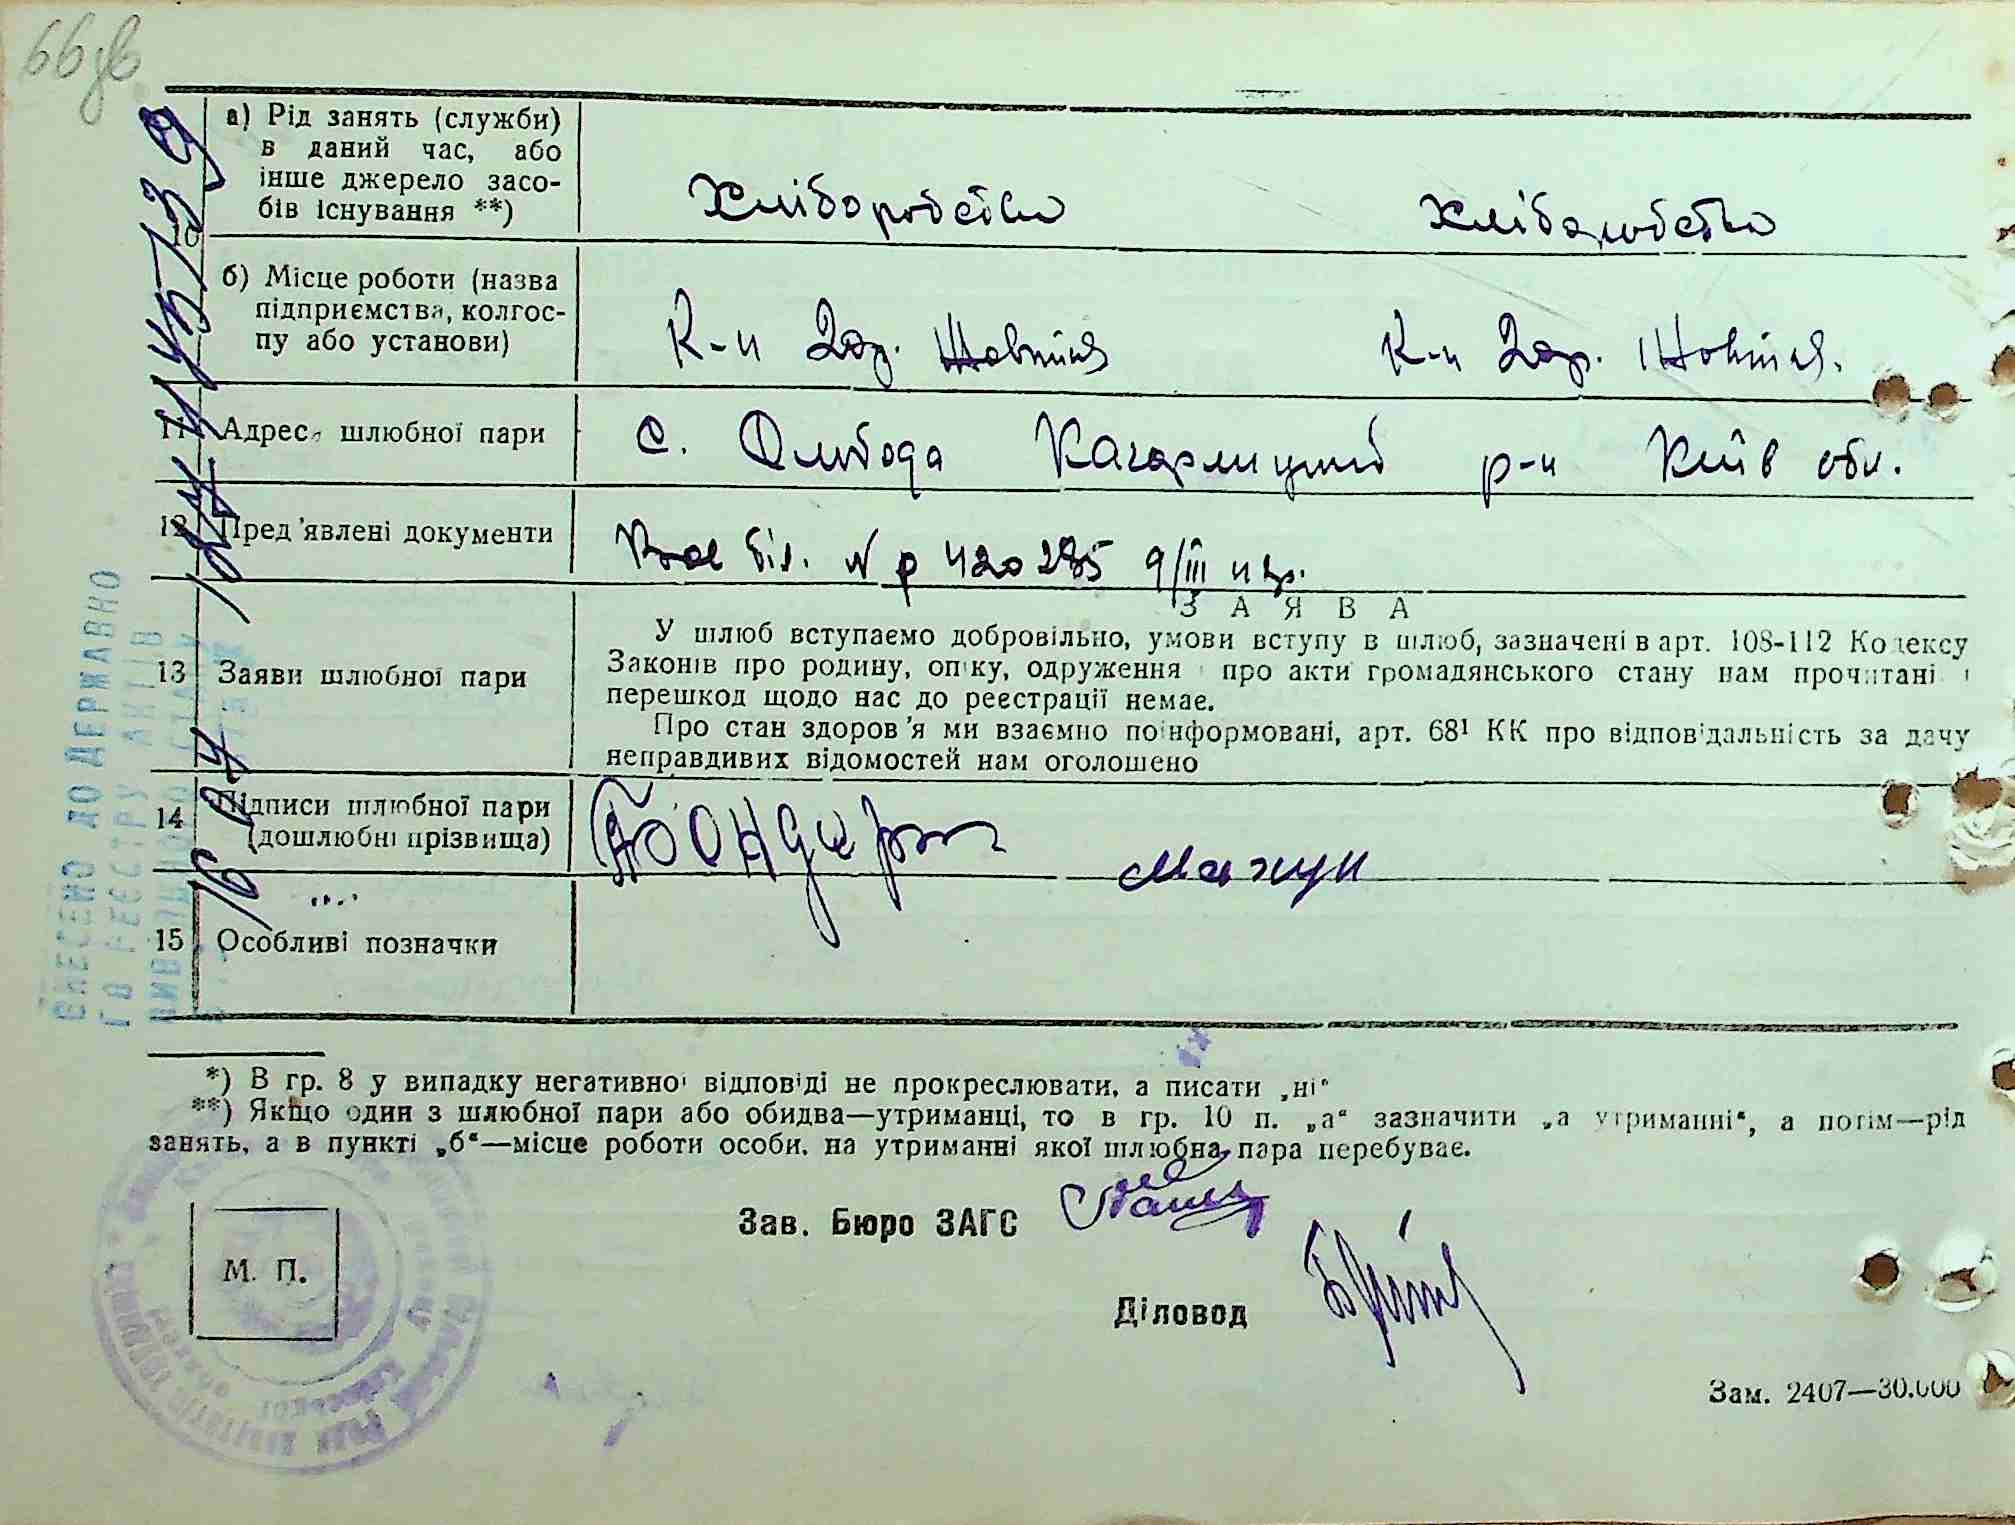 66
а) Рід занять (служби)
в даний час, або
інше джерело засо-
бів існування **)
Хліборобство Хліборобство
10
б) Місце роботи (назва
підприємства, колгос-
пу або установи)
К-п Зор. Жовтня К-п Зор. Жовтня.
11 Адреса шлюбної пари
с. Слобода Кагарлицький р-н Київ обл.
12 Пред'явлені документи
біл. № р 420285 9/III
ЗАЯВА
13 Заяви шлюбної пари
У шлюб вступаємо добровільно, умови вступу в шлюб, зазначені в арт. 108-112 Кодексу
Законів про родину, опіку, одруження і про акти громадянського стану нам прочитані і
перешкод щодо нас до реєстрації немає.
Про стан здоров'я ми взаємно поінформовані, арт. 68¹ КК про відповідальність за дачу
неправдивих відомостей нам оголошено
14 Підписи шлюбної пари
(дошлюбні прізвища)
Бондар Мажуи
15 Особливі позначки
ВНЕСЕНО ДО ДЕРЖАВНО
ГО РЕЄСТРУ АКТІВ
*) В гр. 8 у випадку негативної відповіді не прокреслювати, а писати „ні"
**) Якщо один з шлюбної пари або обидва—утриманці, то в гр. 10 п. „а" зазначити „а утриманні", а потім—рід
занять, а в пункті „б"—місце роботи особи, на утриманні якої шлюбна пара перебуває.
Зав. Бюро ЗАГС
М. П.
Діловод
Зам. 2407—30.000